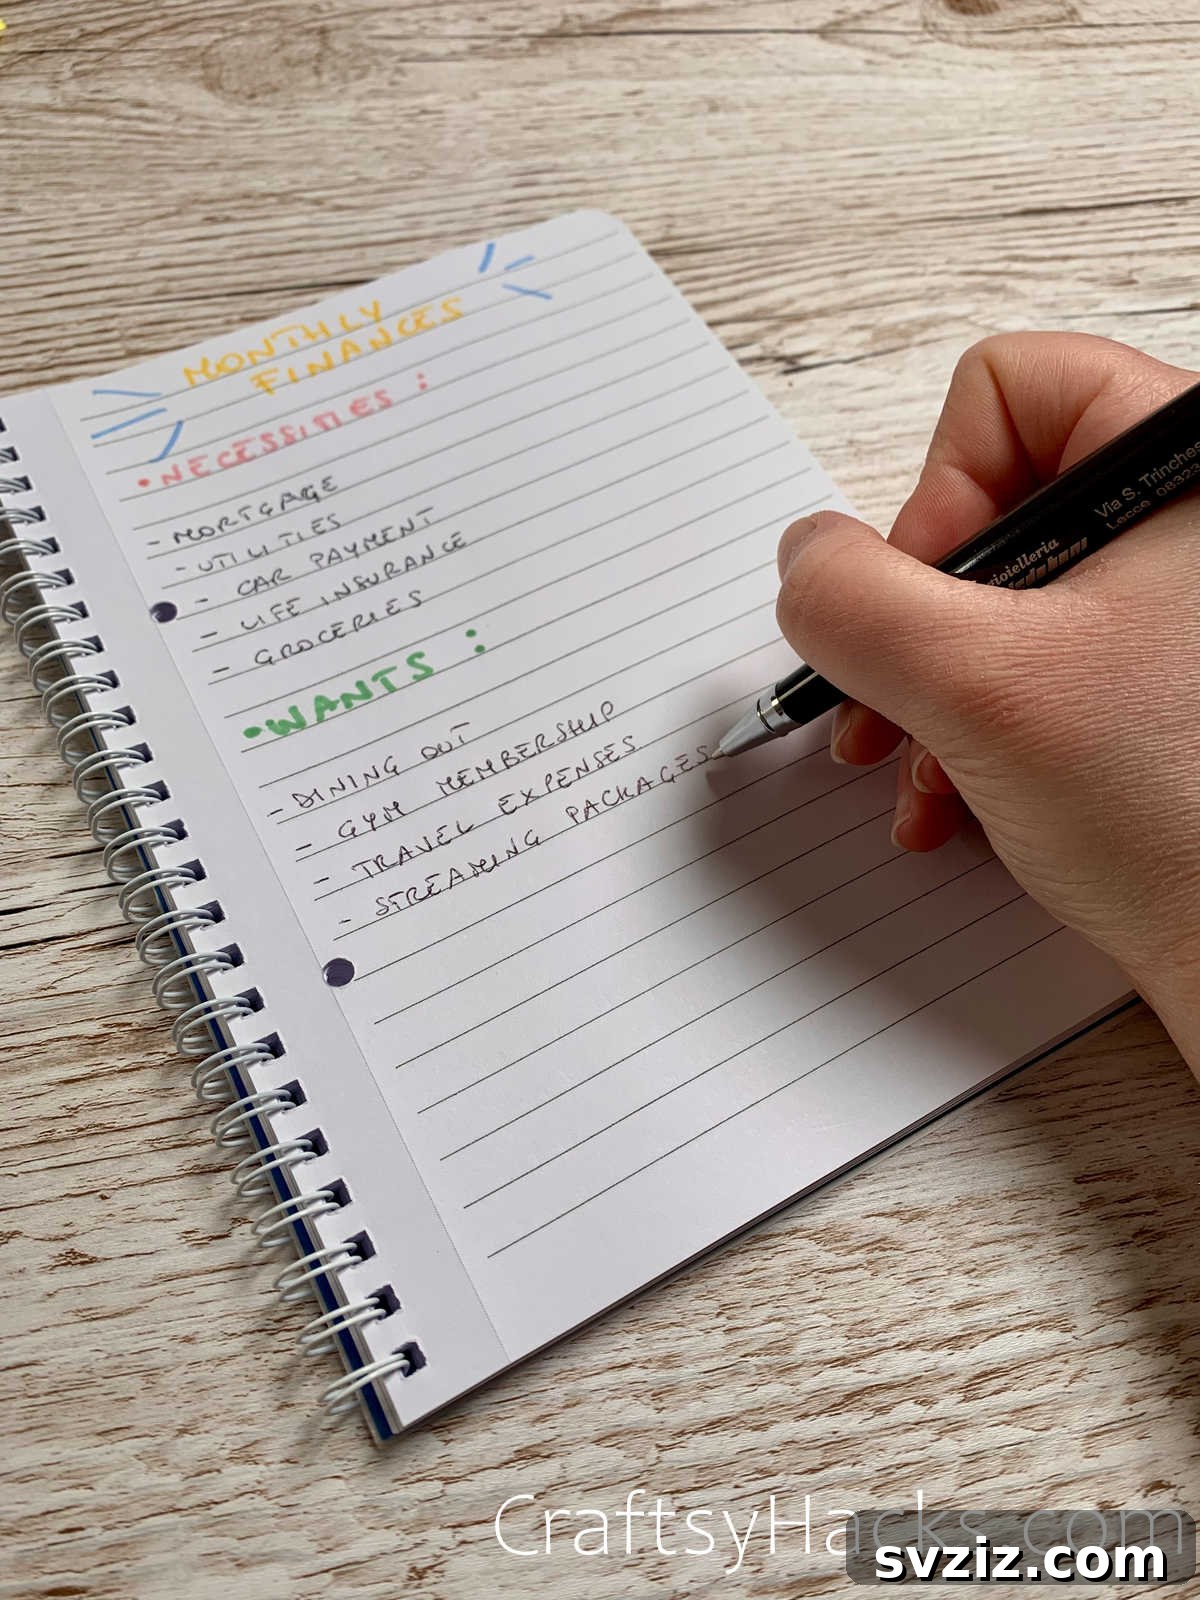 MONTHLY
FINANCES
• NECESSITIES :
- MORTGAGE
- UTILITIES
- CAR PAYMENT
- LIFE INSURANCE
- GROCERIES
• WANTS :
- DINING OUT
- GYM MEMBERSHIP
- TRAVEL EXPENSES
- STREAMING PACKAGES
Via S. Trinches
Lecce 0832
gioielleria
CraftsyHacks.com
svziz.com